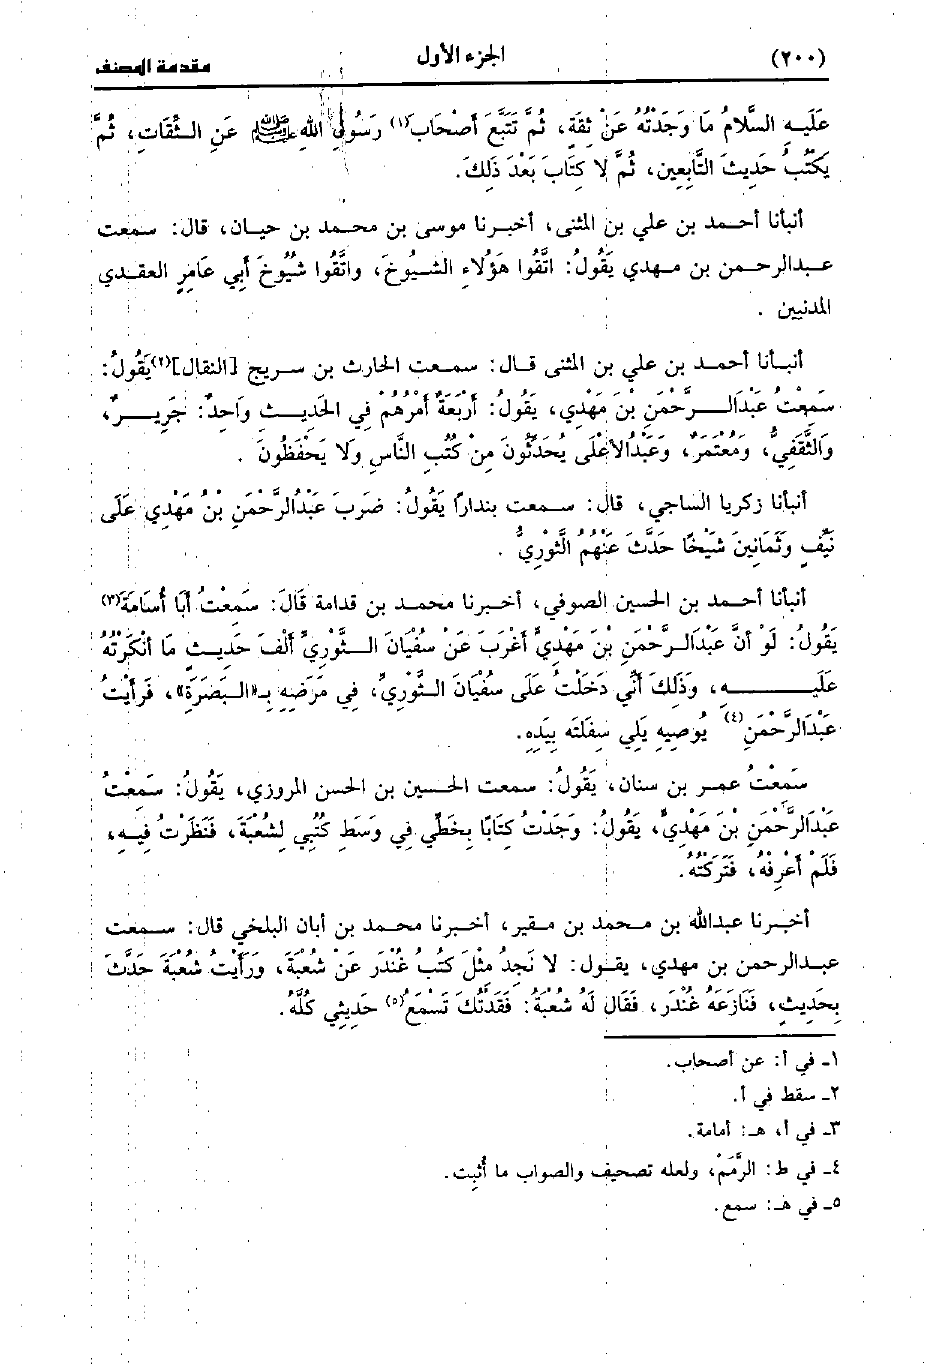 (٢٠٠) الجزء الأول مقدمة المصنف
عَلَيهِ السَّلامُ مَا وَجَدْتُهُ عَنْ ثِقَةٍ، ثُمَّ تَتَبَّعَ أَصْحَابَ(١) رَسُولِ اللهِ ﷺ عَنِ الثِّقَاتِ، ثُمَّ
يَكْتُبُ حَدِيثَ التَّابِعِين، ثُمَّ لا كِتَابَ بَعْدَ ذَلِكَ.
أنبأنا أحمد بن علي بن المثنى، أخبرنا موسى بن محمد بن حيان، قال: سمعت
عبدالرحمن بن مهدي يَقُولُ: اتَّقُوا هَؤُلاءِ الشُّيُوخَ، واتَّقُوا شُيُوخَ أَبي عَامِرٍ العقدي
المدنيين .
أنبأنا أحمد بن علي بن المثنى قال: سمعت الحارث بن سريج [النقال](٢) يَقُولُ:
سَمِعْتُ عَبْدَالرَّحمَنِ بْنَ مَهْدِي، يَقُولُ: أَرْبَعَةٌ أَمْرُهُمْ فِي الحَدِيثِ وَاحِدٌ: جَرِيرٌ،
وَالثَّقَفِيُّ، وَمُعْتَمَرٌ، وَعَبْدُالأَعْلَى يُحَدِّثُونَ مِنْ كُتُبِ النَّاسِ وَلا يَحْفَظُونَ .
أنبأنا زكريا الساجي، قال: سمعت بندارًا يَقُولُ: ضَرَبَ عَبْدُالرَّحْمَنِ بْنُ مَهْدِي عَلَى
نَيِّفٍ وَثَمَانِينَ شَيْخًا حَدَّثَ عَنْهُمُ الثَّوْرِيُّ .
أنبأنا أحمد بن الحسين الصوفي، أخبرنا محمد بن قدامة قَالَ: سَمِعْتُ أَبَا أُسَامَةَ(٣)
يَقُولُ: لَوْ أَنَّ عَبْدَالرَّحْمَنِ بْنَ مَهْدِيٍّ أَغْرَبَ عَنْ سُفْيَانَ الثَّوْرِيِّ أَلْفَ حَدِيثٍ مَا أَنْكَرْتُهُ
عَلَيهِ، وَذَلِكَ أَنِّي دَخَلْتُ عَلَى سُفْيَانَ الثَّوْرِيِّ، فِي مَرَضِهِ بِـ«البَصْرَةِ»، فَرَأَيْتُ
عَبْدَالرَّحْمَنِ(٤) يُوصِيهِ يَلِي سِفْلَتَه بِيَدِهِ.
سَمَعْتُ عمر بن سنان، يَقُولُ: سمعت الحسين بن الحسن المروزي، يَقُولُ: سَمَعْتُ
عَبْدَالرَّحْمَنِ بْنَ مَهْدِيٍّ، يَقُولُ: وَجَدْتُ كِتَابًا بِخَطِّي فِي وَسَطِ كُتُبِي لِشُعْبَةَ، فَنَظَرْتُ فِيهِ،
فَلَمْ أَعْرِفْهُ، فَتَرَكْتُهُ.
أخبرنا عبدالله بن محمد بن مقير، أخبرنا محمد بن أبان البلخي قال: سمعت
عبدالرحمن بن مهدي، يقول: لا نَجِدُ مِثْلَ كُتُبِ غُنْدَرٍ عَنْ شُعْبَةَ، وَرَأَيْتُ شُعْبَةَ حَدَّثَ
بِحَدِيثٍ، فَنَازَعَهُ غُنْدَر، فَقَال لَهُ شُعْبَةُ: فَقَدْتُكَ تَسْمَعُ(٥) حَدِيثِي كُلَّهُ.
١ـ في أ: عن أصحاب.
٢ـ سقط في أ.
٣ـ في أ، هـ: أمامة.
٤ـ في ط: الرَّمَمْ، ولعله تصحيف والصواب ما أُثبِت.
٥ـ في هـ: سمع.